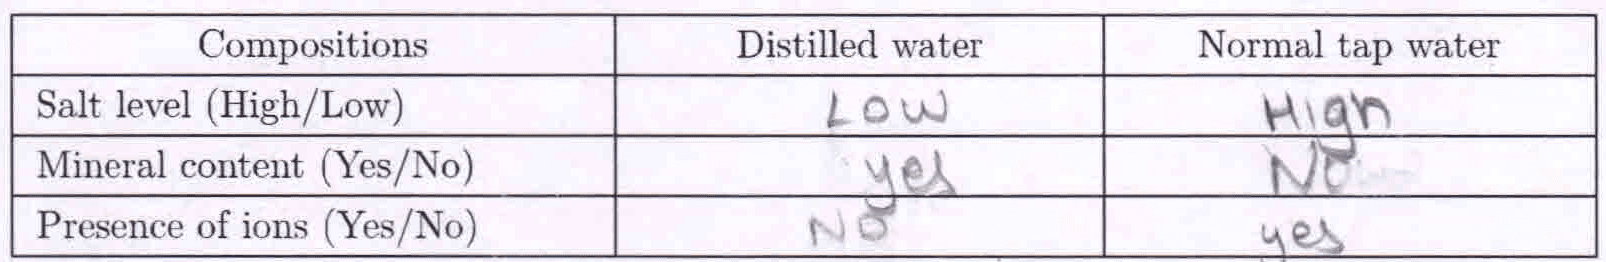 Compositions Distilled water Normal tap water
Salt level (High/Low) LOW High
Mineral content (Yes/No) yes No
Presence of ions (Yes/No) NO yes